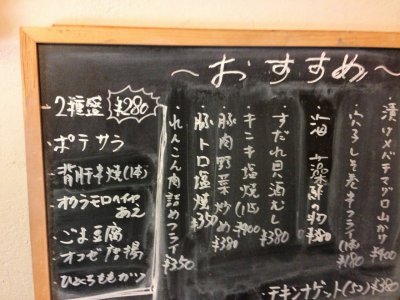 ~おすすめ~
・2種盛 ¥280
・ポテサラ
・背肝串焼(1本)
・オクラモロヘイヤ
あえ
・ごま豆腐
・ひとくちももカツ
・漬けメバチマグロ山かけ ¥400
・穴子しそ巻キフライ(1本) ¥180
¥380
・すだれ貝酒むし ¥380
・キンキ塩焼(1匹) ¥400
・豚肉野菜炒め ¥380
・豚トロ塩焼 ¥350
・れんこん肉詰めフライ ¥350
・チキンナゲット(5コ) ¥380